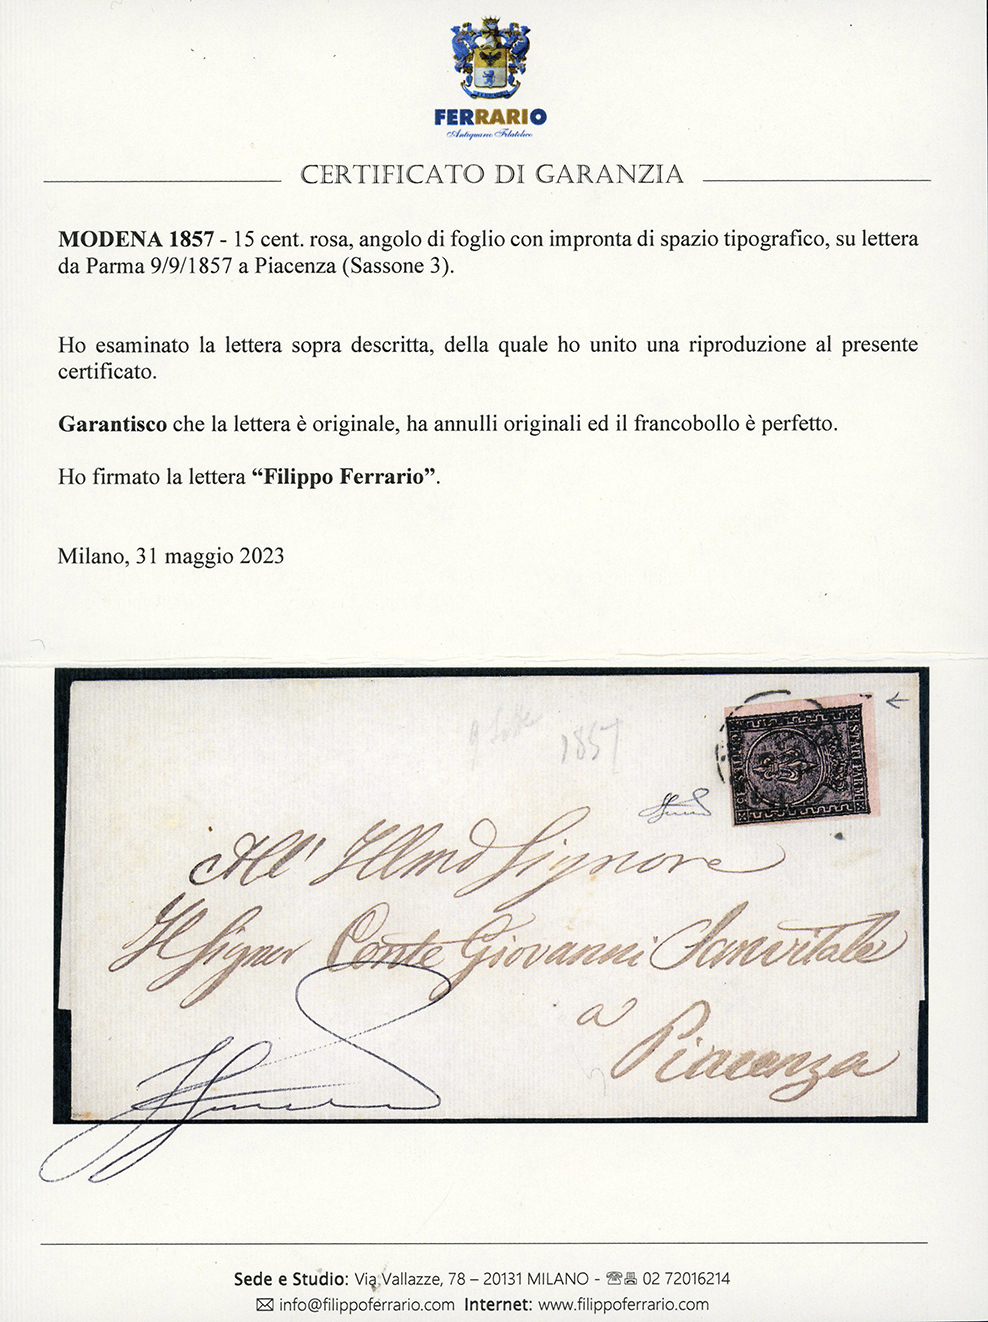 FERRARIO
Antiquario Filatelico
CERTIFICATO DI GARANZIA
MODENA 1857 - 15 cent. rosa, angolo di foglio con impronta di spazio tipografico, su lettera
da Parma 9/9/1857 a Piacenza (Sassone 3).
Ho esaminato la lettera sopra descritta, della quale ho unito una riproduzione al presente
certificato.
Garantisco che la lettera è originale, ha annulli originali ed il francobollo è perfetto.
Ho firmato la lettera “Filippo Ferrario”.
Milano, 31 maggio 2023
1857
STATI PARM.
All' Illmo Signore
Il Signor Conte Giovanni Sanvitale
a
Piacenza
Sede e Studio: Via Vallazze, 78 – 20131 MILANO - 02 72016214
info@filippoferrario.com Internet: www.filippoferrario.com